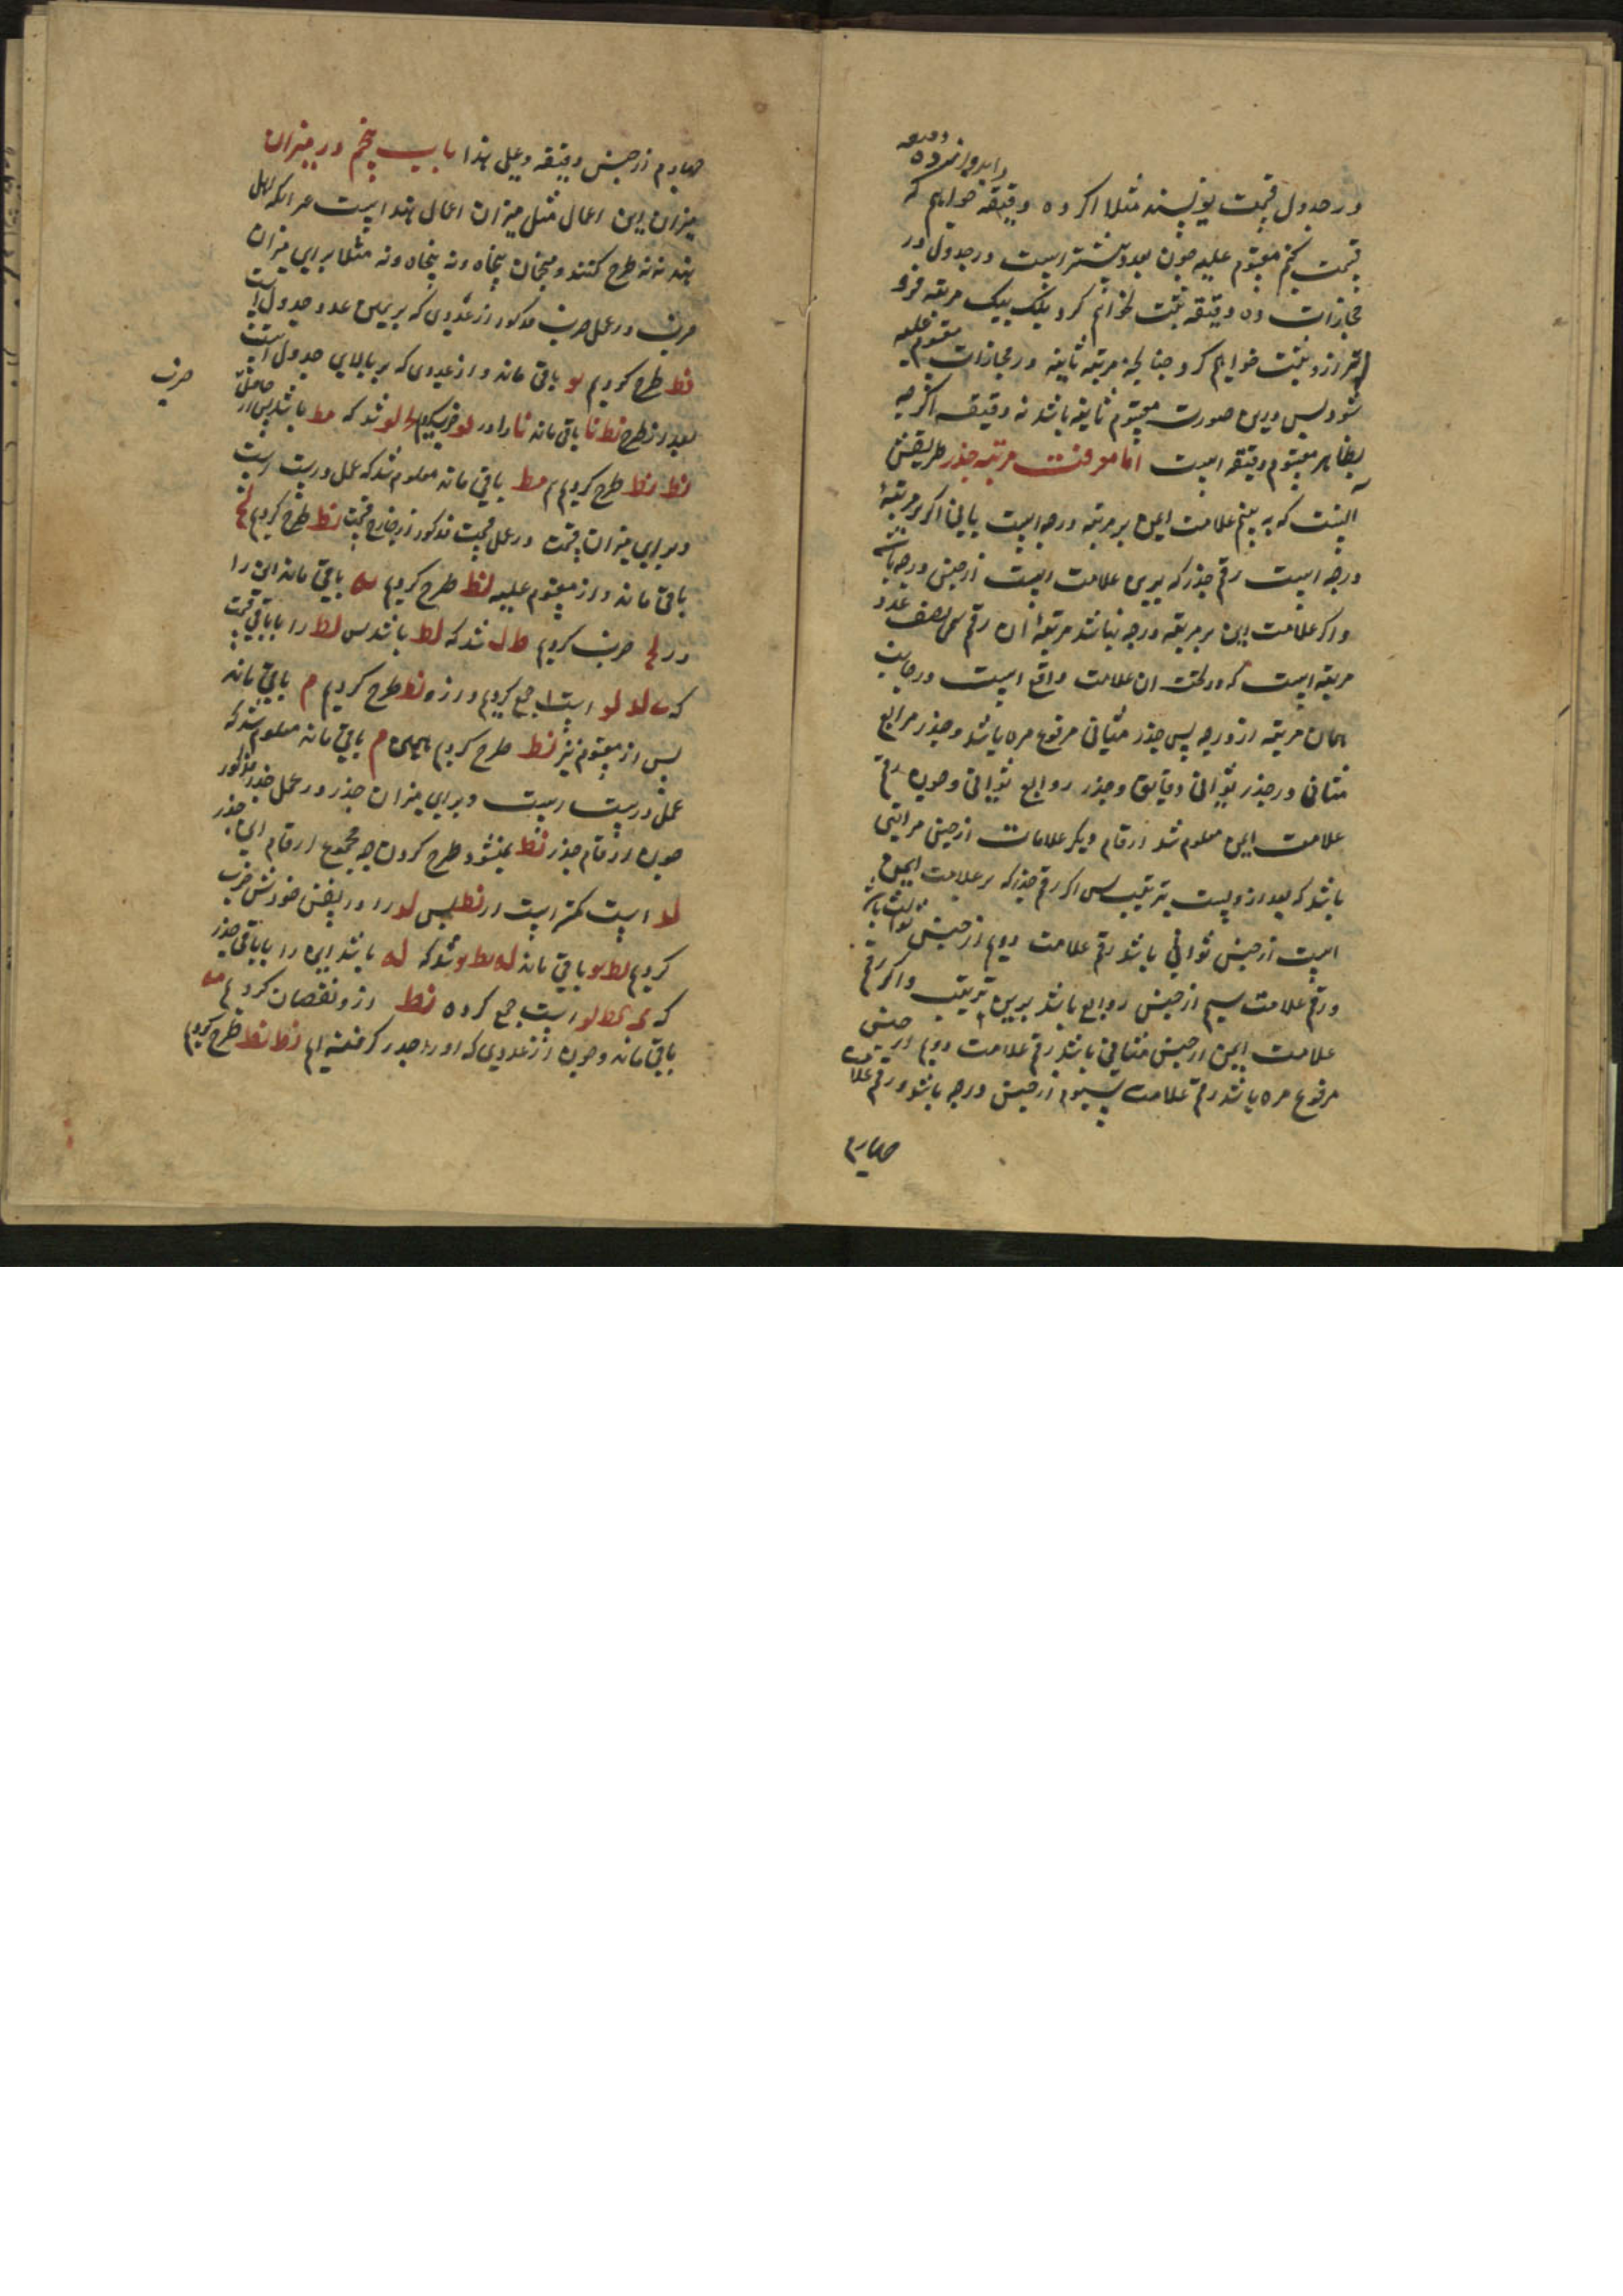 دقیقه
را بدوازده
در جدول قسمت بنویسند مثلا اکر ده دقیقه خواهیم که
قسمت کنیم مقسوم علیه چون بعدد بیشتر است در جدول در
محاذات ده دقیقه ثبت نخواهیم کرد بلکه بیک مرتبه فرو
تر ازو ثبت خواهیم کرد چنانچه مرتبه ثانیه در محاذات مقسوم علیه
شود پس درین صورت مقسوم ثانیه باشد نه دقیقه اکرچه
بظاهر مقسوم دقیقه است اما معرفت مرتبه جذر طریقش
آنست که به بینیم علامت ایمن بر مرتبه درجه است یا نی اکر بر مرتبهٔ
درجه است رقم جذر که برین علامت است از جنس درجه باشد
و اکر علامت ایمن بر مرتبه درجه نباشد مرتبهٔ آن رقم نصف عدد
مرتبه است که در تحت آن علامت واقع است در جانب
همان مرتبه از درجه پس جذر مثانی مرفوع مره باشد و جذر مرابع
مثانی و جذر ثوانی دقایق و جذر روابع ثوانی و چون رقم
علامت ایمن معلوم شد ارقام دیکر علامات از جنس مراتبی
باشد که بعد ازوست بترتیب پس اکر رقم جذر که بر علامت ایمن
است از جنس ثوانی باشد رقم علامت دوم از جنس ثوالث باشد
و رقم علامت سیم از جنس روابع باشد برین ترتیب و اکر رقم
علامت ایمن از جنس مثانی باشد رقم علامت دوم از جنس
مرفوع مره باشد رقم علامت سیوم از جنس درجه باشد و رقم علامت
چهارم
چهارم از جنس دقیقه و علی هذا باب پنجم در میزان
میزان این اعمال مثل میزان اعمال هند است مر آنکه اهل
هند نه نه طرح کنند و منجمان پنجاه و نه پنجاه و نه مثلا برای میزان
ضرب در عمل ضرب مذکور از عددی که بر یمین عدد جدول است
نط طرح کردیم لو باقی ماند و از عددی که بر بالای جدول است
ضرب
بعد از طرح نط نا باقی ماند نا را در لو ضرب کردیم ل لو شد که مط باشد پس از حاصل
نط نط طرح کردیم مط باقی ماند معلوم شد که عمل درست است
و برای میزان قسمت در عمل قسمت مذکور از خارج قسمت نط طرح کردیم لح
باقی ماند و از مقسوم علیه نط طرح کردیم باقی ماند این را
در لح ضرب کردیم ط ل شد که لط باشد پس لط را با باقی قسمت
که لد لو است جمع کردیم و ازو نط طرح کردیم م باقی ماند
پس از مقسوم نیز نط طرح کردیم همین م باقی ماند معلوم شد که
عمل درست است و برای میزان جذر در عمل جذر مذکور
چون از ارقام جذر نط نمیشود طرح کردن چه مجموع ارقام این جذر
لد است کمتر است از نط پس لد را در نفس خودش ضرب
کردیم لط لو باقی ماند له لط لو شد که له باشد این را با باقی جذر
که لو است جمع کرده نط ازو نقصان کردیم
باقی ماند و چون از عددی که او را جذر کرفته ایم نط نط طرح کردیم